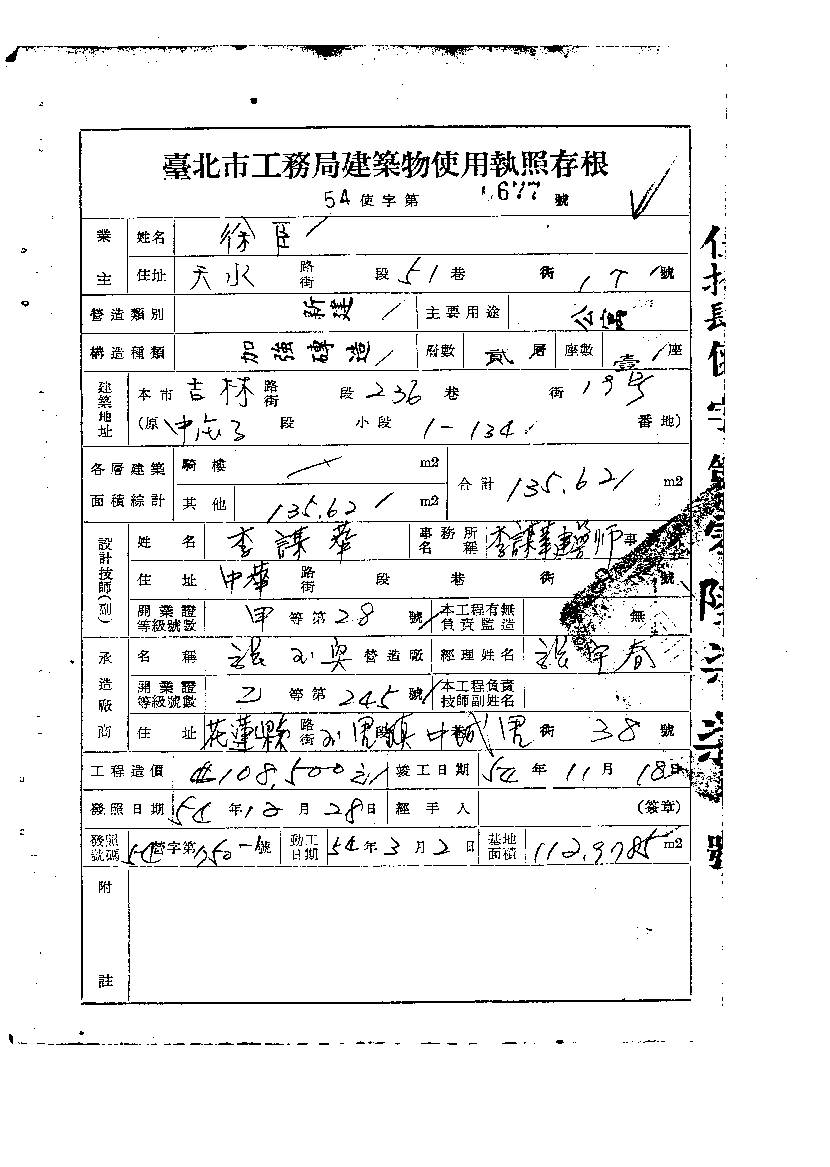 臺北市工務局建築物使用執照存根
54使字第 1677 號
業主 姓名 徐臣
住址 天水 路街 段 51 巷 街 17 號
營造類別 新建 主要用途 公寓
構造種類 加強磚造 層數 貳層 座數 壹座
建築地址 本市 吉林 路街 段 236 巷 街 19號
(原 中庄子 段 小段 1-134 番地)
各層建築面積綜計 騎樓 m2 合計 135.62 m2
其他 135.62 m2
設計技師(副) 姓名 李謀華 事務所名稱 李謀華建築师事
住址 中華 路街 段 巷 街 號
開業證等級號數 甲等第28號 本工程有無負責監造 無
承造廠商 名稱 營造廠 經理姓名 春
開業證等級號數 乙等第245號 本工程負責技師副姓名
住址 花蓮縣 路街 玉里鎮中 街 38 號
工程造價 108,500元 竣工日期 54年11月18日
發照日期 54年12月28日 經手人 (簽章)
發照號碼 54營字第250-1號 動工日期 54年3月2日 基地面積 112.9785 m2
附註